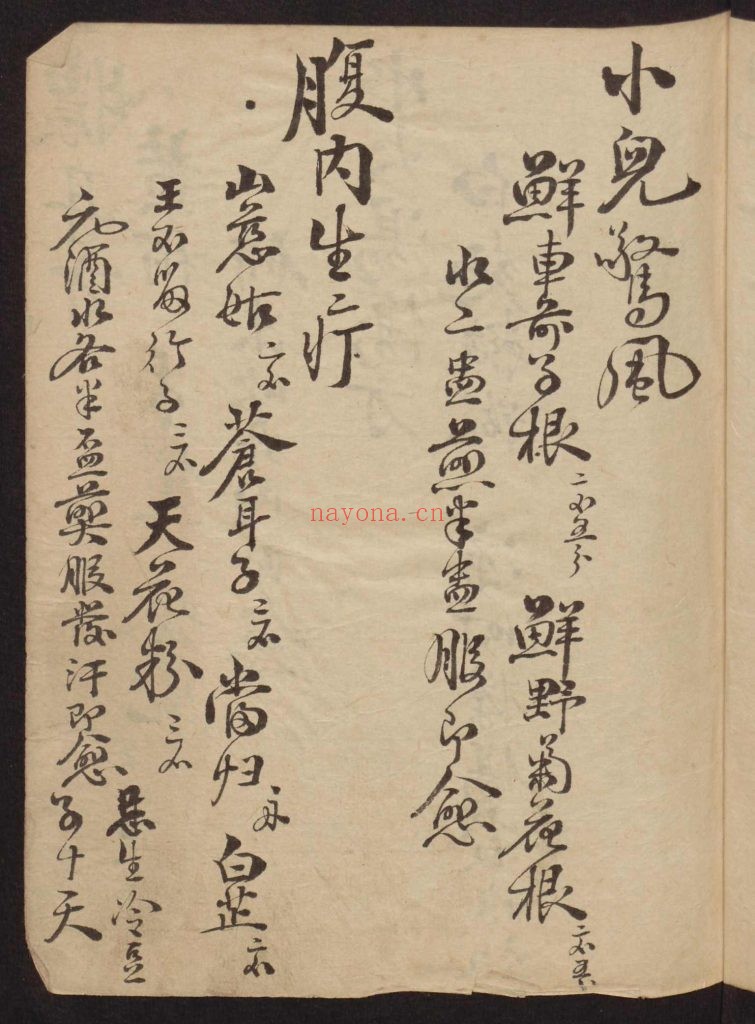 小兒驚風
鮮車前子根 二不五分 鮮野菊花根 二不五分
水二盅煎半盅服即愈
腹内生疔
山慈姑 二不 蒼耳子 三不 當归 白芷 二不
王不留行子 三不 天花粉 三不 忌生冷豆
元酒水各半盃煎服發汗即愈 子十天
nayona.cn